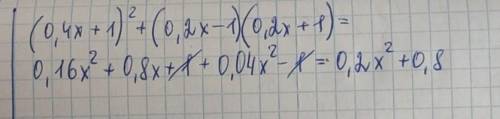 (0,4x+1)²+(0,2x-1)(0,2x+1)=
0,16x²+0,8x+1+0,04x²-1=0,2x²+0,8